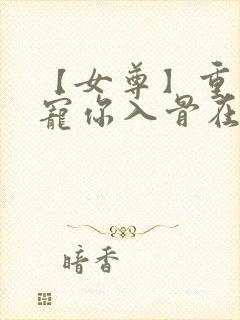 【女尊】重
寵你入骨在
暗香